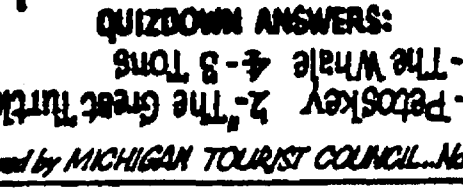 QUIZDOWN ANSWERS:
- Petoskey 2-"The Great Turtl
- The Whale 4- 3 Tons
ed by MICHIGAN TOURIST COUNCIL...No